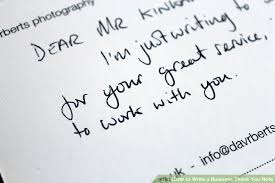 davrberts photography
DEAR MR KINKA
I'm just writing to
for your great service,
to work with you.
k - info@davrberts
How to Write a Business Thank You Note